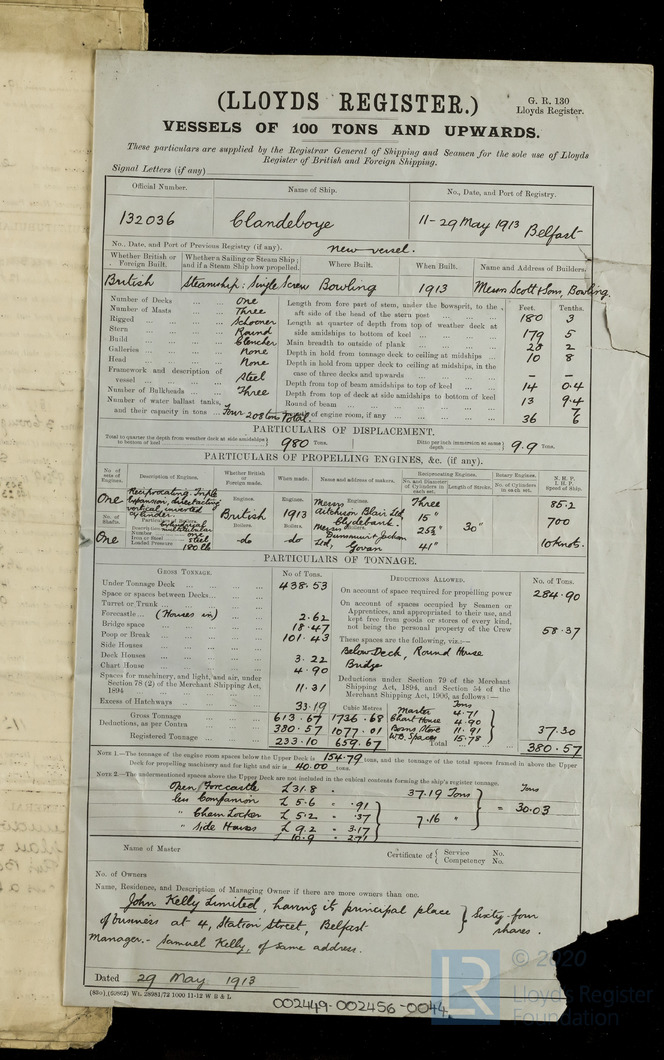 (LLOYDS REGISTER.)
G. R. 130
Lloyds Register.
VESSELS OF 100 TONS AND UPWARDS.
These particulars are supplied by the Registrar General of Shipping and Seamen for the sole use of Lloyds
Register of British and Foreign Shipping.
Signal Letters (if any)
Official Number. Name of Ship. No., Date, and Port of Registry.
132036 Clandeboye 11-29 May 1913 Belfast
No., Date, and Port of Previous Registry (if any). New vessel.
Whether British or Foreign Built. Whether a Sailing or Steam Ship; and if a Steam Ship how propelled. Where Built. When Built. Name and Address of Builders.
British Steamship: Single Screw Bowling 1913 Messrs Scott & Sons, Bowling.
Number of Decks One
Number of Masts Three
Rigged Schooner
Stern Round
Build Clencher
Galleries None
Head None
Framework and description of vessel Steel
Number of Bulkheads Three
Number of water ballast tanks, and their capacity in tons Four 208 tons Total.
Feet. Tenths.
Length from fore part of stem, under the bowsprit, to the aft side of the head of the stern post 180 3
Length at quarter of depth from top of weather deck at side amidships to bottom of keel 179 5
Main breadth to outside of plank 28 2
Depth in hold from tonnage deck to ceiling at midships 10 8
Depth in hold from upper deck to ceiling at midships, in the case of three decks and upwards - -
Depth from top of beam amidships to top of keel 14 0.4
Depth from top of deck at side amidships to bottom of keel 13 9.4
Round of beam 7
Length of engine room, if any 36 6
PARTICULARS OF DISPLACEMENT.
Total to quarter the depth from weather deck at side amidships to bottom of keel 980 Tons.
Ditto per inch immersion at same depth 9.9 Tons.
PARTICULARS OF PROPELLING ENGINES, &c. (if any).
No. of sets of Engines. Description of Engines. Whether British or Foreign made. When made. Name and address of makers. Reciprocating Engines. Rotary Engines. N. H. P. I. H. P. Speed of Ship.
No. and Diameter of Cylinders in each set. Length of Stroke. No. of Cylinders in each set.
One Reciprocating Triple expansion, direct acting vertical inverted cylinder.
Engines. British Engines. 1913 Engines. Messrs Aitchison Blair Ltd, Clydebank.
Three 15" 25½" 41" 30"
85.2
700
10 knots.
No. of Shafts. One
Particulars of Boilers.
Description Cylindrical multitubular
Number one
Iron or Steel Steel
Loaded Pressure 180 lb
Boilers. do Boilers. do Boilers. Messrs Dunsmuir & Jackson Ltd, Govan
PARTICULARS OF TONNAGE.
GROSS TONNAGE. No. of Tons.
Under Tonnage Deck 438.53
Space or spaces between Decks
Turret or Trunk
Forecastle (Houses in) 2.62
Bridge space 18.47
Poop or Break 101.43
Side Houses
Deck Houses 3.22
Chart House 4.90
Spaces for machinery, and light, and air, under Section 78 (2) of the Merchant Shipping Act, 1894 11.31
Excess of Hatchways 33.19
Cubic Metres
Gross Tonnage 613.67 1736.68
Deductions, as per Contra 380.57 1077.01
Registered Tonnage 233.10 659.67
DEDUCTIONS ALLOWED. No. of Tons.
On account of space required for propelling power 284.90
On account of spaces occupied by Seamen or Apprentices, and appropriated to their use, and kept free from goods or stores of every kind, not being the personal property of the Crew 58.37
These spaces are the following, viz.:—
Below Deck, Round House
Bridge
Deductions under Section 79 of the Merchant Shipping Act, 1894, and Section 54 of the Merchant Shipping Act, 1906, as follows:—
Tons
Master 4.71
Chart House 4.90
Bosns Store 11.91
W.B. Spaces 15.78
37.30
Total 380.57
NOTE 1.—The tonnage of the engine room spaces below the Upper Deck is 154.79 tons, and the tonnage of the total spaces framed in above the Upper
Deck for propelling machinery and for light and air is 40.00 tons.
NOTE 2.—The undermentioned spaces above the Upper Deck are not included in the cubical contents forming the ship's register tonnage.
Open Forecastle £31.8 = 37.19 Tons Tons
less Companion £5.6 = .91
" Chain Locker £5.2 = .37 7.16 " = 30.03
" Side Houses £9.2 = 3.17
£10.9 = 2.71
Name of Master
Certificate of Service No. Competency No.
No. of Owners
Name, Residence, and Description of Managing Owner if there are more owners than one.
John Kelly Limited, having its principal place
of business at 4, Station Street, Belfast
Sixty-four shares.
Manager.- Samuel Kelly, of same address.
Dated 29 May 1913
(83o), (59862) Wt. 28981/72 1000 11-12 W B & L
002449-002456-0044
LR
© 2020
Lloyd's Register
Foundation